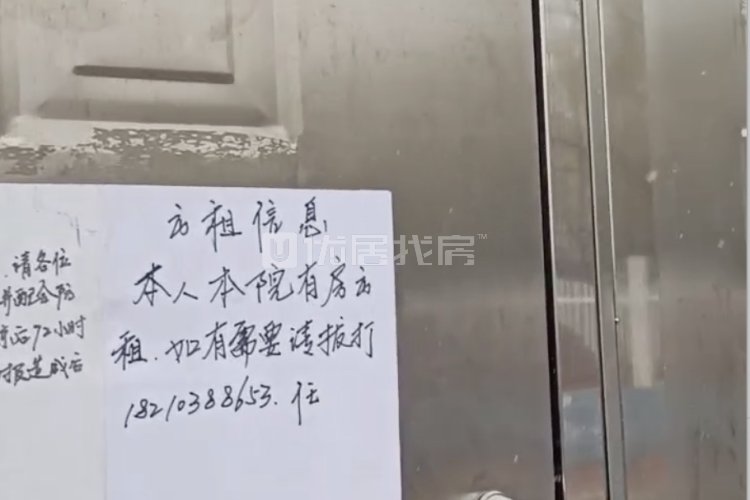 请各位
并配合防
京后72小时
报造成后
出租信息
本人本院有房出
租.如有需要请拨打
18210388653.任
优居找房™